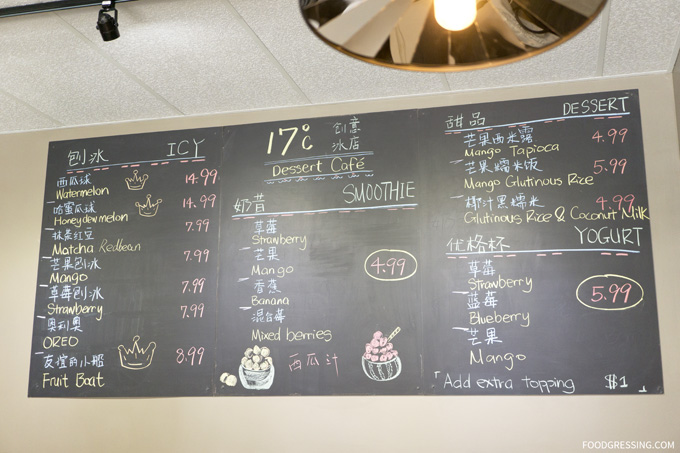 刨冰 ICY
西瓜球 14.99
Watermelon
哈蜜瓜球 14.99
Honeydewmelon
抹茶红豆 7.99
Matcha Redbean
芒果刨冰 7.99
Mango
草莓刨冰 7.99
Strawberry
奥利奥 7.99
OREO
友谊的小船 8.99
Fruit Boat
17℃ 创意冰店
Dessert Café
奶昔 SMOOTHIE
草莓
Strawberry
芒果
Mango
4.99
香蕉
Banana
混合莓
Mixed berries
西瓜汁
甜品 DESSERT
芒果西米露 4.99
Mango Tapioca
芒果糯米饭 5.99
Mango Glutinous Rice
椰汁黑糯米 4.99
Glutinous Rice & Coconut Milk
优格杯 YOGURT
草莓
Strawberry
5.99
蓝莓
Blueberry
芒果
Mango
Add extra topping $1
FOODGRESSING.COM